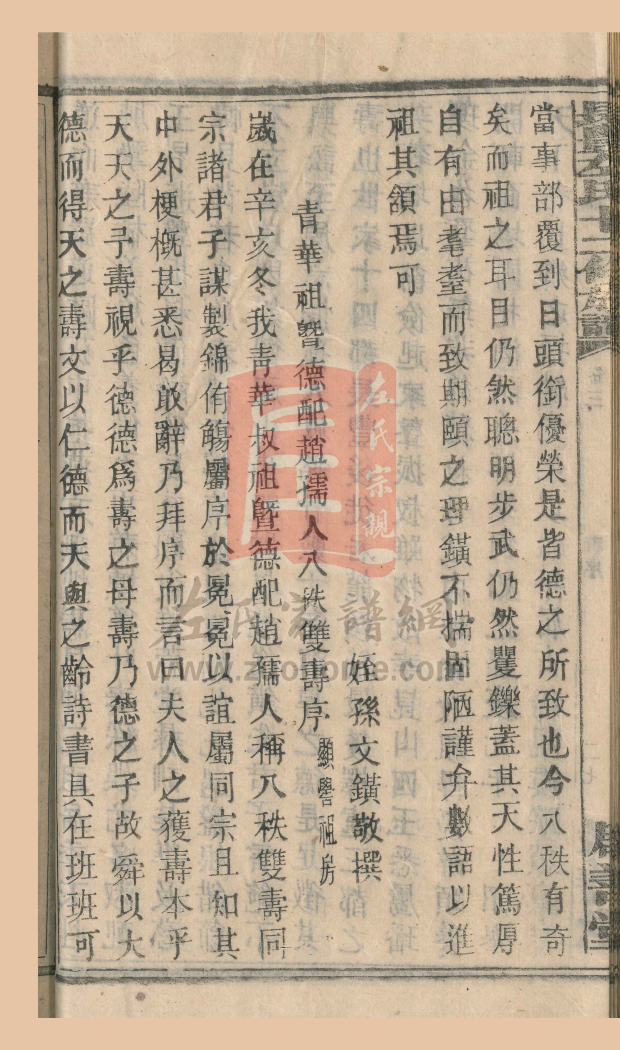 當事部覆到日頭銜優榮是皆德之所致也今八秩有奇
矣而祖之耳目仍然聰明步武仍然矍鑠蓋其天性篤厚
自有由耄耋而致期頤之理鐄不揣固陋謹弁數語以進
祖其頷焉可
姪孫文鐄敬撰
青華祖暨德配趙孺人八秩雙壽序 顯譽祖房
歲在辛亥冬我靑華叔祖暨德配趙孺人稱八秩雙壽同
宗諸君子謀製錦侑觴屬序於冕冕以誼屬同宗且知其
中外梗槪甚悉曷敢辭乃拜序而言曰夫人之獲壽本乎
天天之予壽視乎德德爲壽之母壽乃德之子故舜以大
德而得天之壽文以仁德而天與之齡詩書具在班班可
卷三
左氏宗親
左氏家譜網